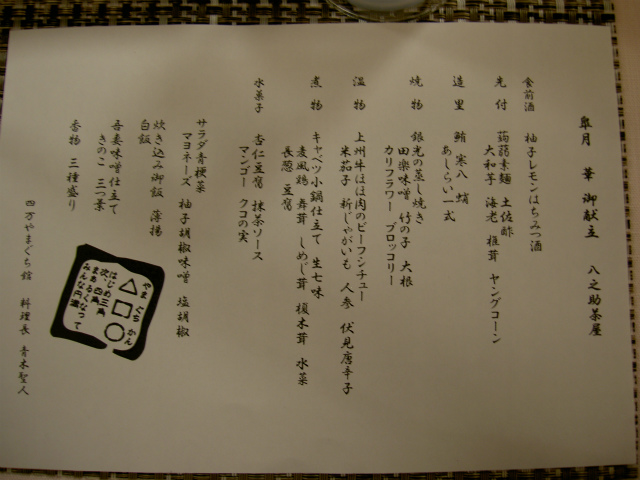 皐月 華 御献立 八之助茶屋
食前酒 柚子レモンはちみつ酒
先付 蒟蒻素麺 土佐酢
大和芋 海老 椎茸 ヤングコーン
造里 鮪 寒八 蛸
あしらい一式
焼物 銀光の蒸し焼き
田楽味噌 竹の子 大根
カリフラワー ブロッコリー
温物 上州牛ほほ肉のビーフシチュー
米茄子 新じゃがいも 人参 伏見唐辛子
煮物 キャベツ小鍋仕立て 生七味
麦風鶏 舞茸 しめじ茸 榎木茸 水菜
長葱 豆腐
水菓子 杏仁豆腐 抹茶ソース
マンゴー クコの実
サラダ青梗菜
マヨネーズ 柚子胡椒味噌 塩胡椒
炊き込み御飯 薄揚
白飯
吾妻味噌仕立て
きのこ 三つ葉
香物 三種盛り
やまぐちかん
はじめ三角
次、四角
まぁるくなって
みんな円満
四万やまぐち館 料理長 青木聖人